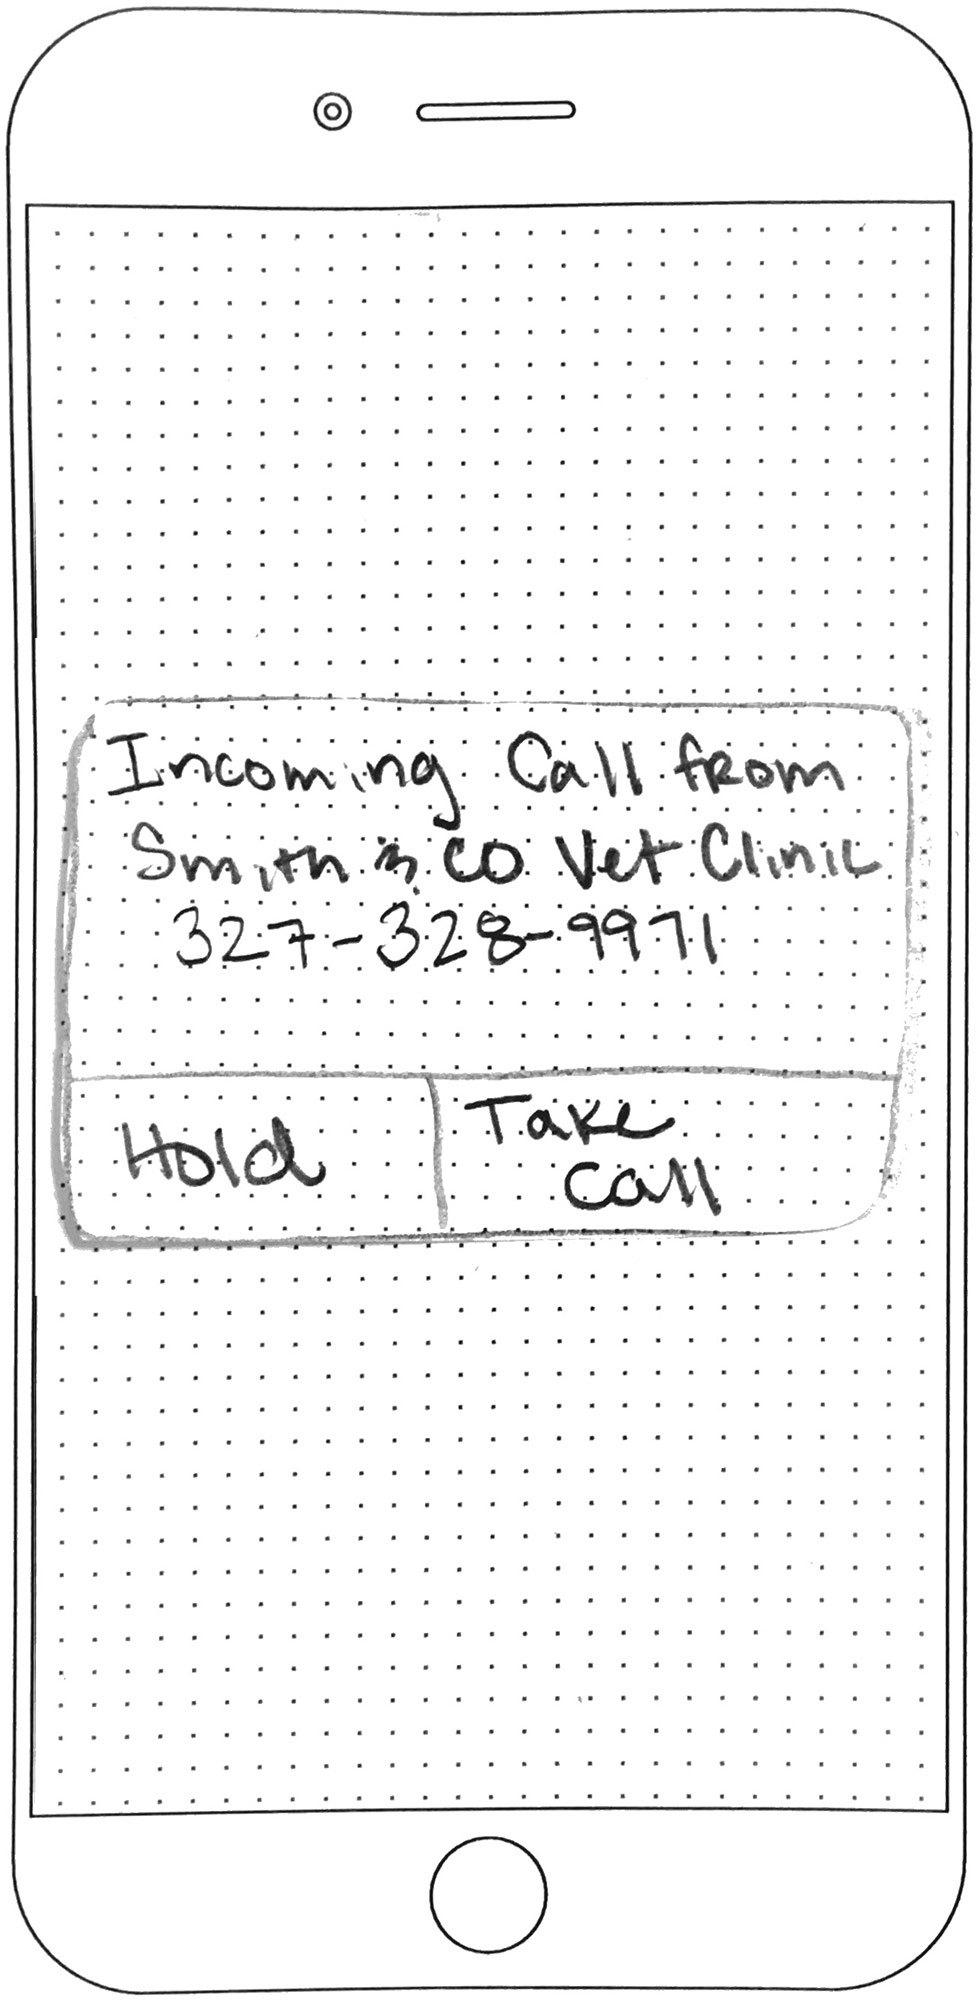 Incoming Call from
Smith & CO Vet Clinic
327-328-9971
Hold
Take
Call